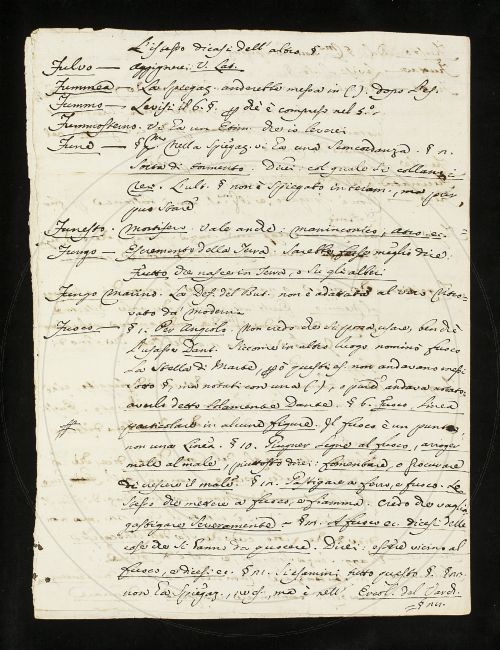 L'istesso dicasi dell'altro §
Fulvo — aggiugnerei V. Lat.
Fummea — La Spiegaz. anderebbe messa in ( ). dopo Les.
Fummo — Levisi il 6. §. è compreso nel 5.°
Fummosterno. Vi è un che io leverei
Fune — § Nella Spiegaz. vi è una Sconcordanza. § n.
Sorta di tormento. Direi: col quale si
L'ult. § non è Spiegato in , ma
può Stare
Funesto, mortifero. Vale anche: maninconico, ec.
Fungo — Escremento della Terra. Sarebbe forse meglio dire:
frutto che nasce in Terra, o Su gli alberi
Fungo Marino. La Def. del But. non è adattata al vero
vato da' moderni
Fuoco — § 1. Per Angiolo. Non credo che si possa usare, benchè
L'usasse Dant. Siccome in altro luogo nominò fuoco
La Stella di Marte, questi es. non andavano messi
sotto §, ma notati con una ( ), o andava notato
averlo detto Solamente Dante. § 6. Fuoco, Linea
particolare in alcune figure. Il fuoco è un punto,
non una Linea. § 10. legne al fuoco, arroger
male al male, piuttosto direi: fomentare, o procurare
di crescere il male. § n. Gastigare a ferro, e fuoco. Lo
stesso che mettere a fuoco, e fiamma. Credo che vaglia
gastigare Severamente = § n. A fuoco ec. dicesi delle
cose che si fanno da cuocere. Direi: essere vicino al
fuoco, e dicesi ec. § n. Si esamini tutto questo §. § n.
non ha Spiegaz., , ma è nell'. Ercol. del Varchi.
= § n.